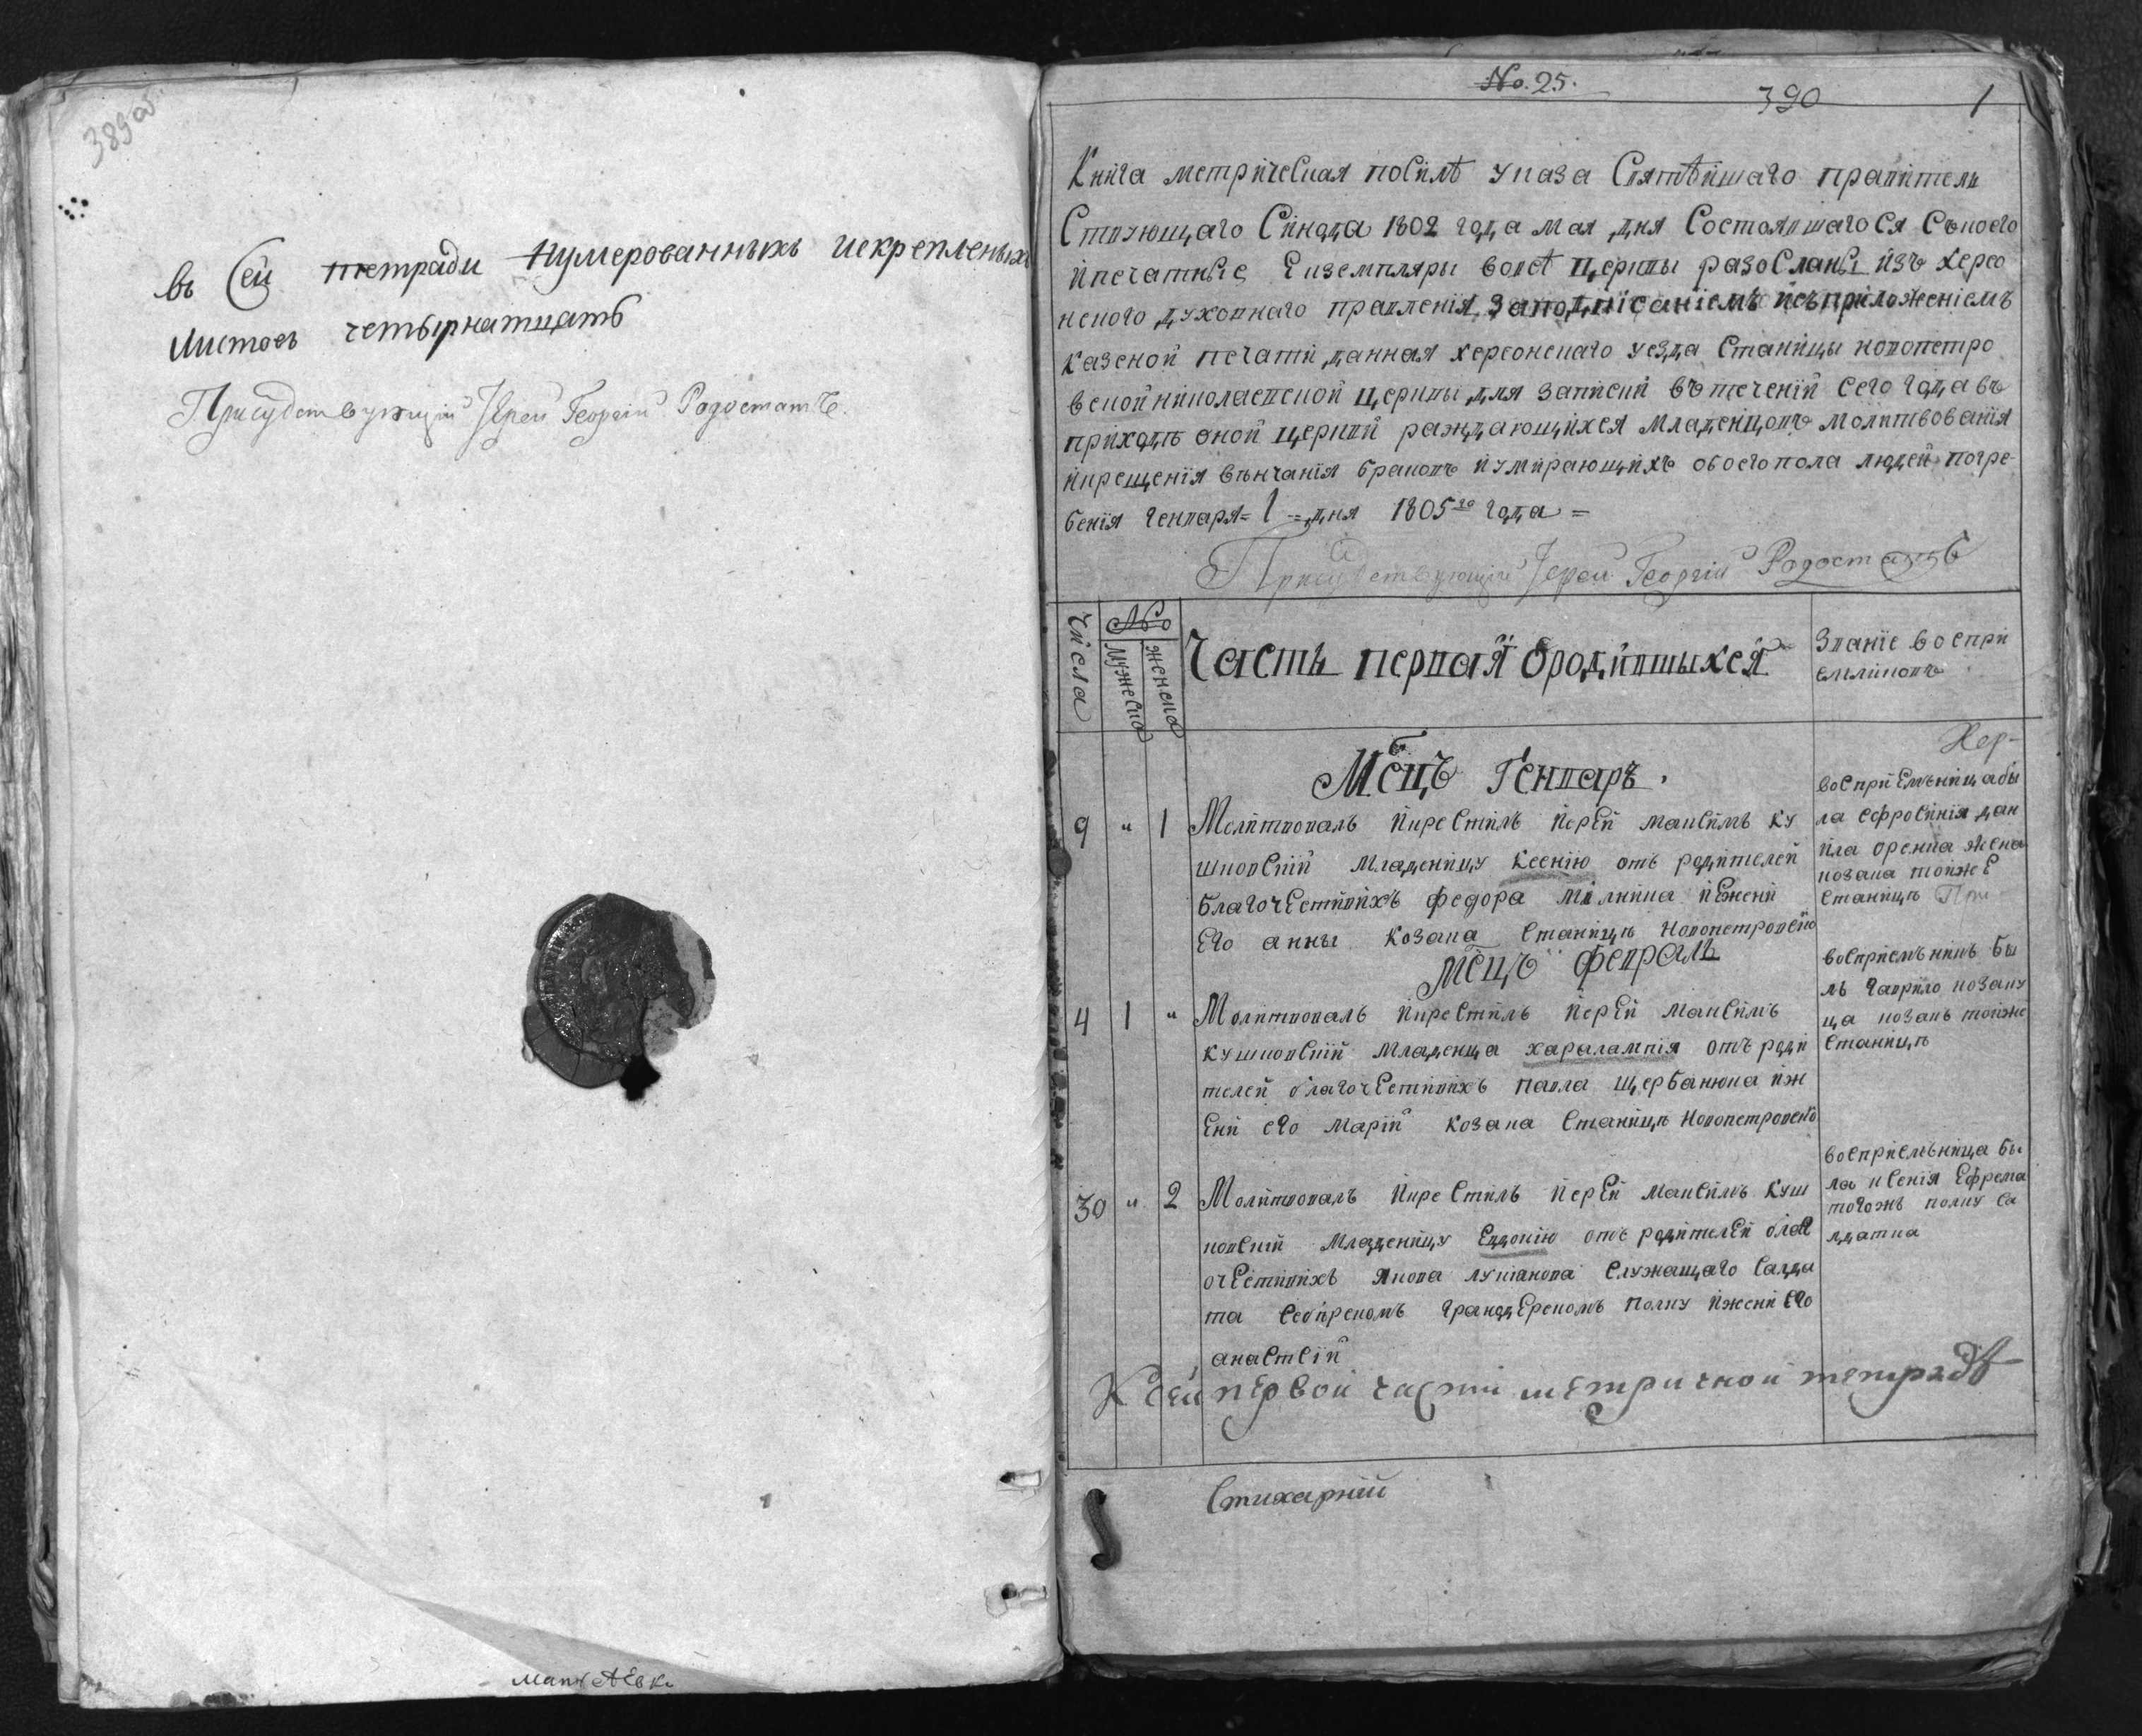 389 об.
въ Сей тетради Нумерованныхъ искрепленыхъ
листовъ четырнатцать
Присудствующій Іерей Георгій Родостатъ.
No. 25.
390 1
Книга метрическая посилѣ указа Святѣйшаго правитель
Ствующаго Синода 1802 года мая дня Состоявшагося Съкоего
ипечатные Екземпляры вовсѣ церквы разосланы изъ херсо
нского духовнаго правления заподписаніемъ исъприложеніемъ
казеной печати данная херсонскаго уезда Станицы новопетро
вской николаевской церквы для записки вътеченіи сего года въ
приходѣ оной церкви раждающихся младенцовъ молитвованія
икрещенія вѣнчанія браковъ иумирающихъ обоегопола людей погре-
бенія Генваря = 1 = дня 1805го года =
Присудствующій Іерей Георгій Родостатъ
Числа
No
мужеска
женска
Часть первая ородившыхся
Званіе воспри
емликовъ
Мсцъ Генваръ.
Хер-
9 " 1 Молитвовалъ икрестилъ иерей максимъ ку
шковскій младеницу ксенію отъ родителей
благочестивихъ федора мілника ижени
его анны козака станицѣ новопетровской
воспріемъница бы
ла ефросинія дан
ила орена жена
козака тоижЕ
станицѣ При
мсцъ февралъ
4 1 " Молитвовалъ икрестилъ иерей максимъ
кушковскій младенца харалампія отъ роди
телей благочестивихъ павла щербанюка иж
ени его марій козака станицѣ новопетровской
воспріемъникъ бы
лъ гаврило козаку
ца козакъ тоиже
станицѣ
30 " 2 Молитвовалъ икрестилъ иерей максимъ куш
ковскій младеницу Евдокію отъ родителей благ
очестивихъ якова лукіанова служащаго салда
та сибирскомъ грандерскомъ полку ижени его
анастсій
воспріемъница бы
ла ксенія Ефрема
тогожъ полку са
лдатка
К сей первой части метричной тетради
Стихарний